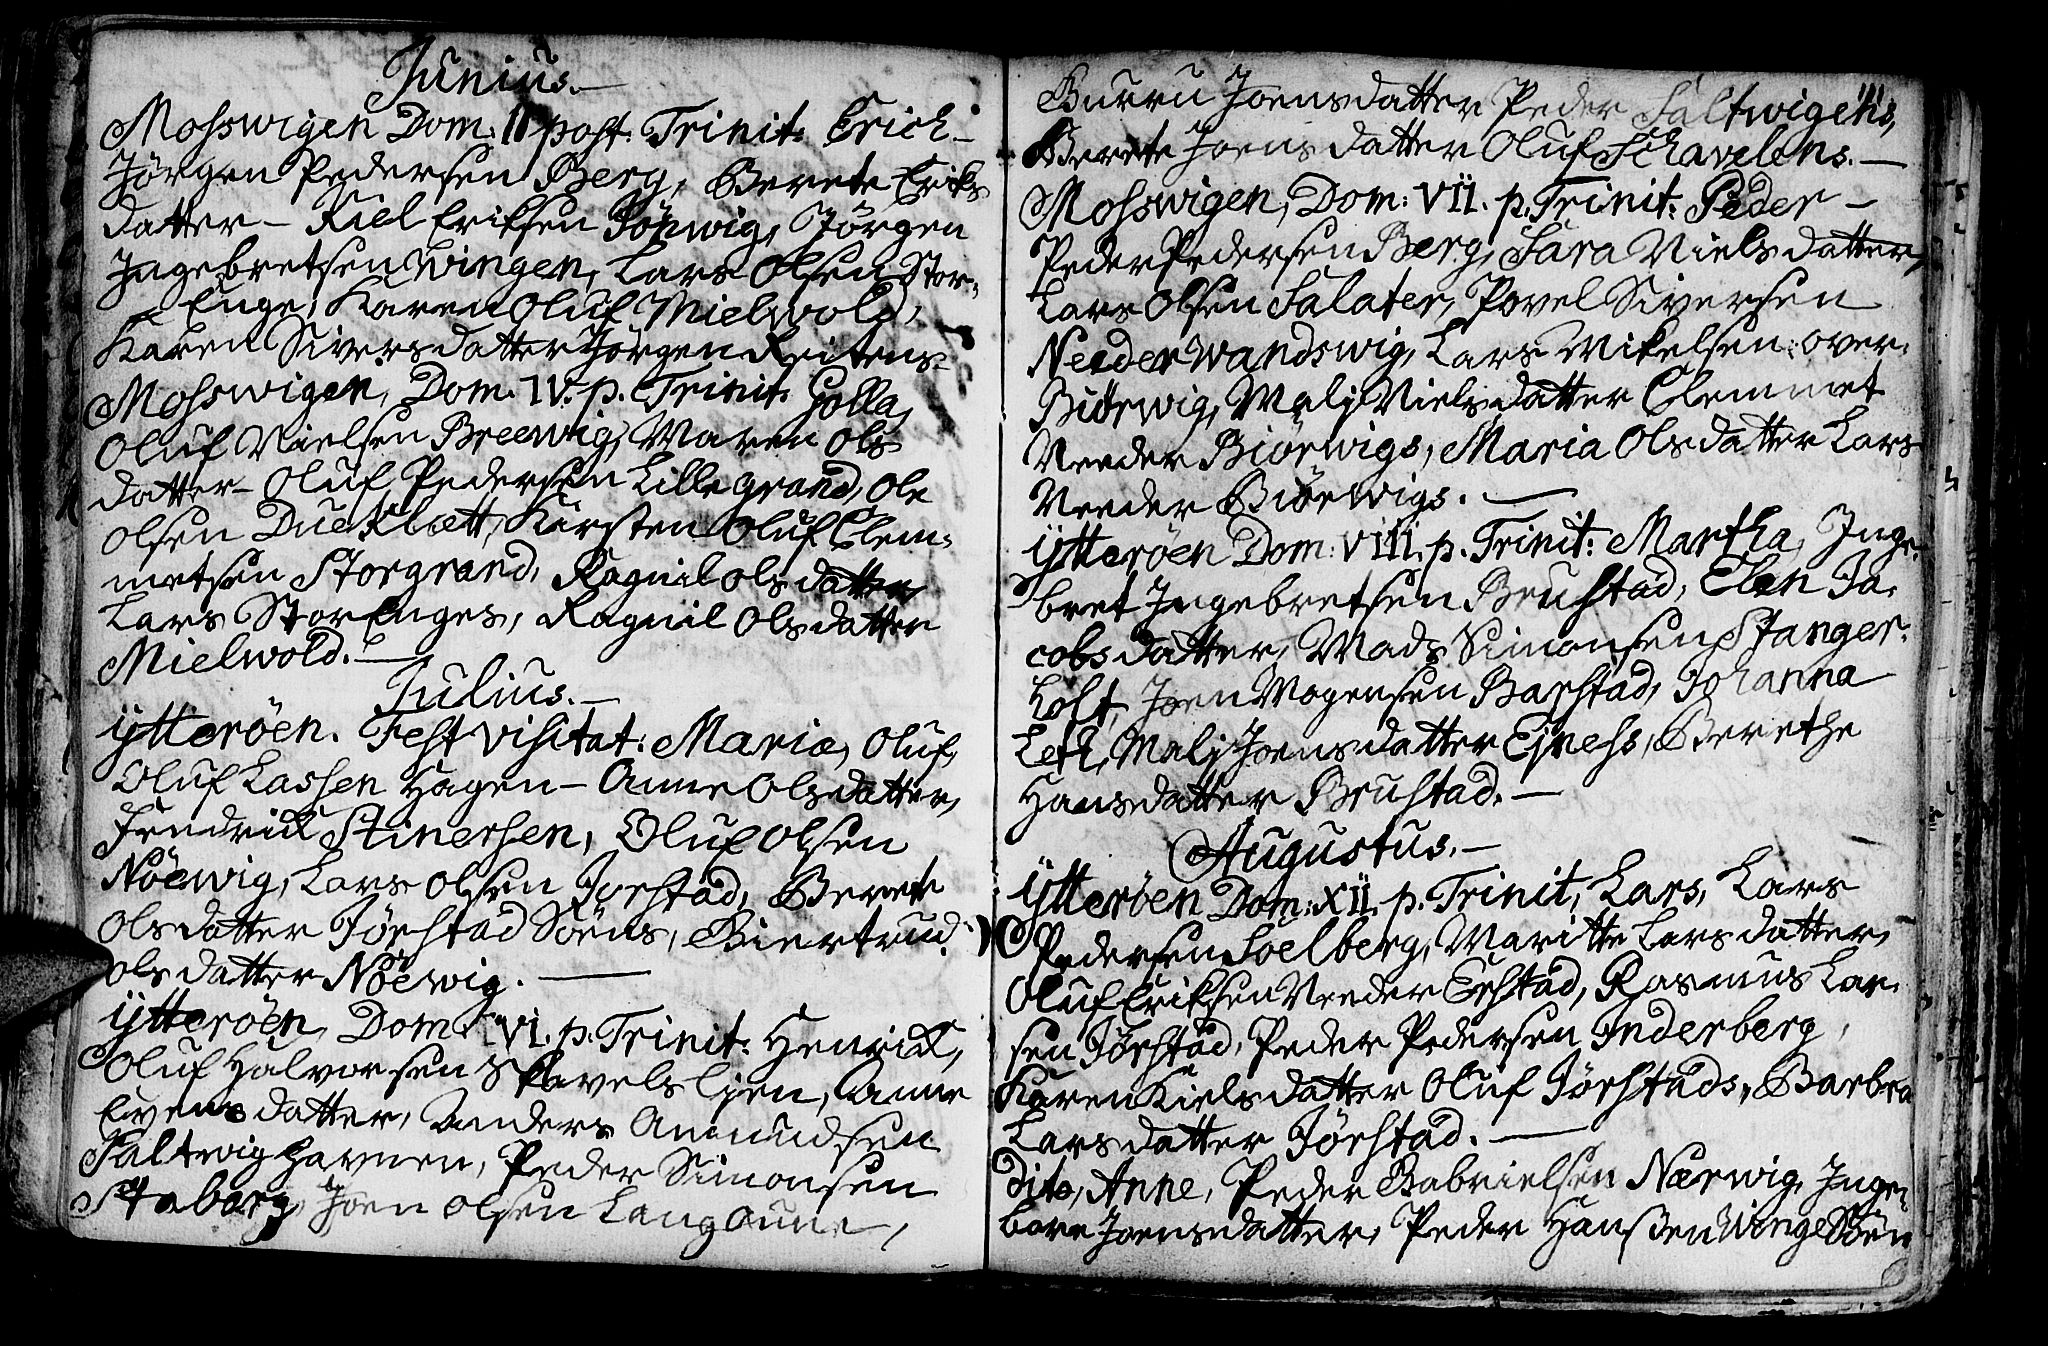 Junius.
Mosswigen Dom: II post: Trinit: Erich
Jörgen Pedersen Berg, Berete Eriks
datter - Kiel Eriksen Jörwig, Jörgen
Ingebretsen Wingen, Lars Olsen Stor-
Enge, Karen Oluf Mielwold,
Karen Siversdatter Jörgen Reitens
Mosswigen, Dom. IV. p. Trinit: Golla,
Oluf Nielsen Breewig, Maren Ols
datter - Oluf Pedersen Lille grand, Ole
Olsen Dueklætt, Kirsten Oluf Clem-
metsen Storgrand, Ragnil Olsdatter
Lars StorEnges, Ragnil Olsdatter
Mielwold.
Julius.
Ytterøen. Fest Visitat: Mariæ, Oluf,
Oluf Lassen Hagen - Anne Olsdatter,
Fredrick Stinersen, Oluf Olsen
Nöewig, Lars Olsen Jørstad, Beret
Olsdatter Jørstad Söens, Giertrud
Olsdatter Nöewig.
Ytterøen, Dom: VI. p. Trinit: Henrick,
Oluf Halvorsen Skavelslien, Anne
Evensdatter, Anders Amundsen
Saltwighavnen, Peder Simonsen
Staborg, Joen Olsen Langaune,
111
Gurru Joensdatter Peder Saltwigens,
Berete Joensdatter Oluf Schavelens.
Mosswigen, Dom: VII. p. Trinit: Peder
Peder Pedersen Berg, Sara Nielsdatter,
Lars Olsen Salater, Povel Siversen
Neder Wandswig, Lars Mikelsen over
Biörwig, Malj Nielsdatter Clemmet
Neder Biörwigs, Maria Olsdatter Lars
Neder Biörwigs.
Ytterøen Dom: VIII. p. Trinit: Martha, Inge-
bret Ingebretsen Brustad, Elen Ja-
cobsdatter, Mads Simonsen Stanger-
holt, Joen Mogensen Barstad, Johanna
Leth, Malj Joensdatter Ejness, Berethe
Hansdatter Brustad.
Augustus.
Ytterøen Dom: XII. p. Trinit, Lars, Lars
Pedersen Soelberg, Maritte Larsdatter,
Oluf Eriksen Neder Erstad, Rasmus Lar-
sen Jørstad, Peder Pedersen Inderberg,
Karen Kielsdatter Oluf Jørstads, Barbra
Larsdatter Jørstad.
Dito, Anne, Peder Gabrielsen Nærwig, Inge-
borr Joensdatter, Peder Hanßen Winge Söen